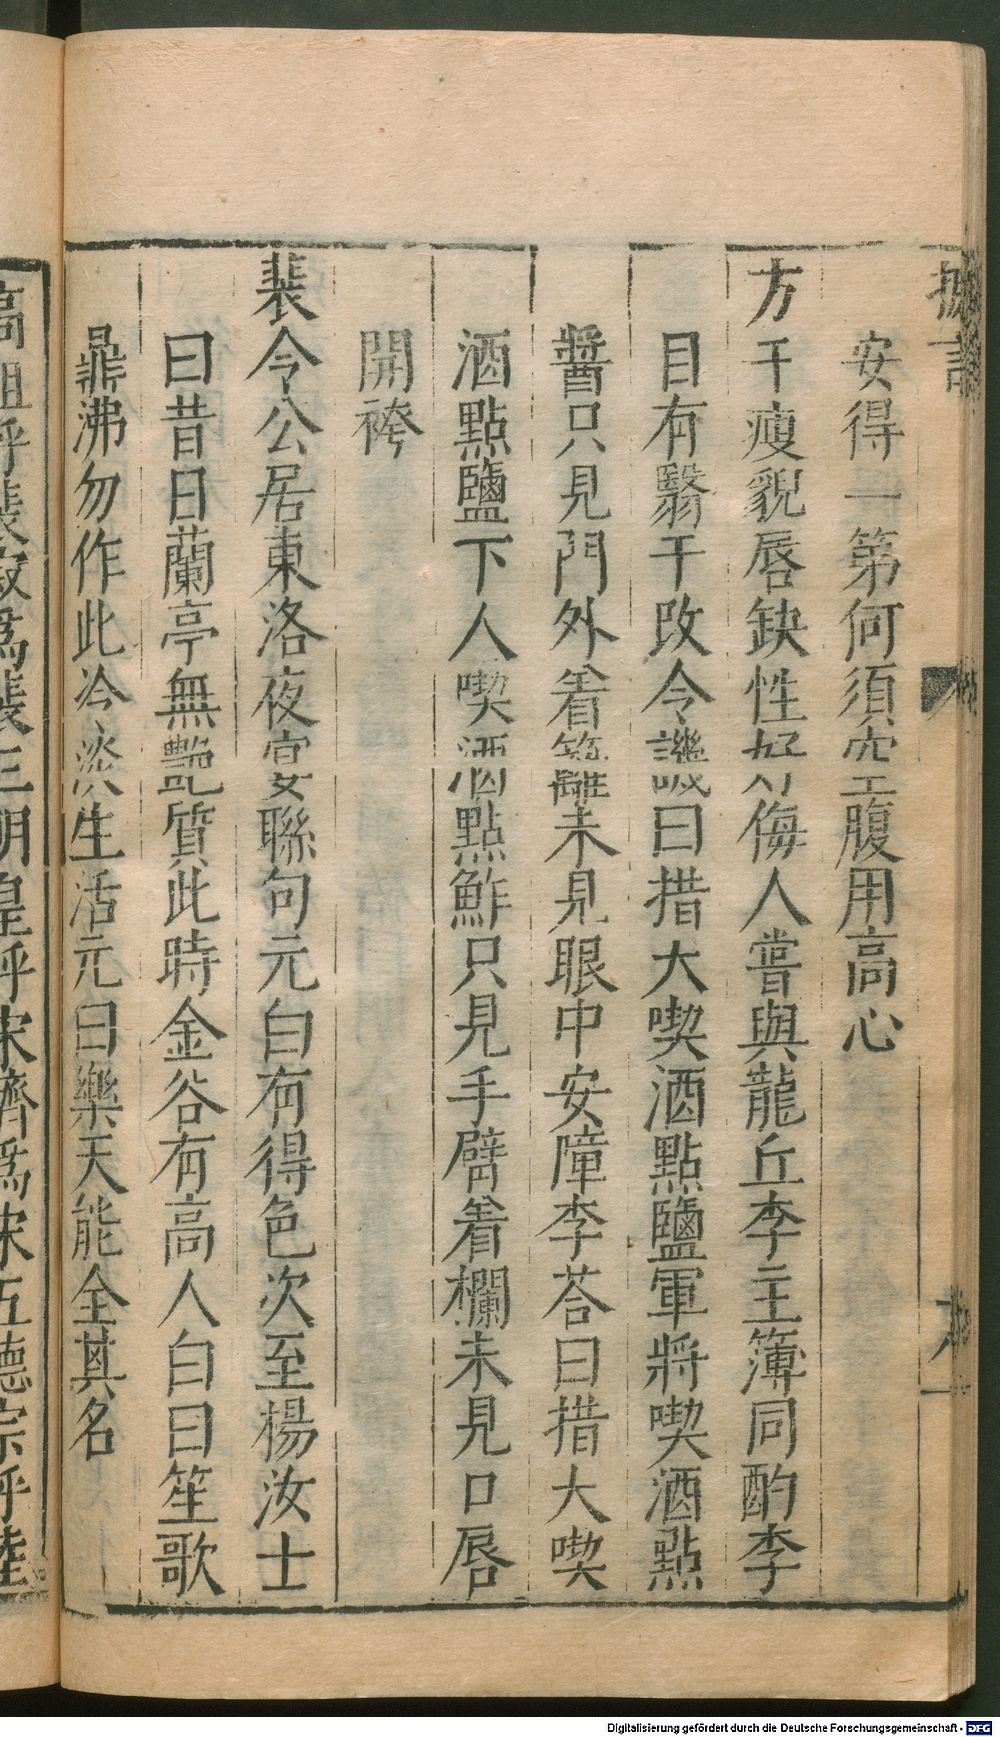 摭言
安得一第何須空腹用高心
方干瘦貌唇缺性好侮人嘗與龍丘李主簿同酌李
目有翳干改令譏曰措大喫酒點鹽軍將喫酒點
醬只見門外着籬未見眼中安障李荅曰措大喫
酒點鹽下人喫酒點鮓只見手臂着襴未見口唇
開袴
裴令公居東洛夜宴聯句元白有得色次至楊汝士
曰昔日蘭亭無艷質此時金谷有高人白曰笙歌
鼎沸勿作此冷淡生活元曰樂天能全其名
高祖呼裴寂爲裴三明皇呼宋濟爲宋五德宗呼陸
Digitalisierung gefördert durch die Deutsche Forschungsgemeinschaft - DFG